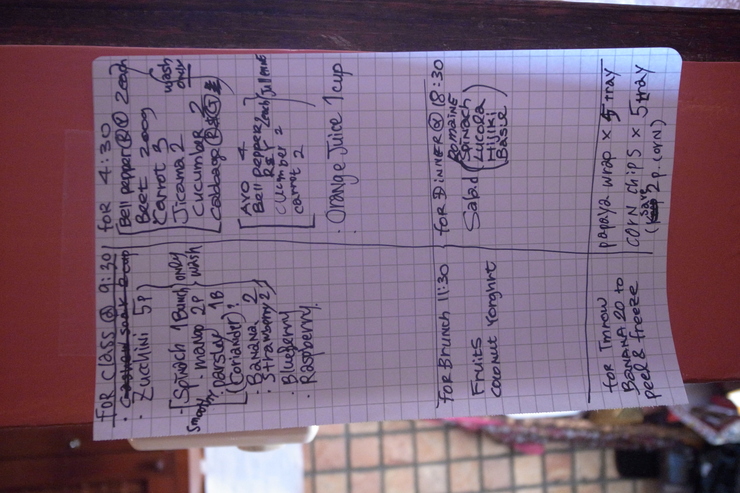 FOR CLASS @ 9:30
· Cashew soak 2 cup
· Zucchini 5p
Spinach 1 Bunch
· mango 2P
only wash
smoothy
parsley 1B
(Coriander)?
· Banana 2
· Strawberry 2
· Blueberry
· Raspberry.
for 4:30
Bell pepper Ⓡ Ⓨ 2each
Beet 200g
Carrot 3
Jicama 2
wash only
Cucumber 2
Cabbage Ⓡ & Ⓖ
AVO 4
Bell pepper
cucumber 2
carrot 2
· Orange Juice 1 cup
FOR Brunch 11:30
Fruits
coconut Yorghrt
FOR DINNER @ 18:30
Salad
Romaine
Spinach
Lucola
Hijiki
Basil
for Tmrow
BANANA 20 to
peel & freeze
papaya wrap x 5 tray
CORN chips x 5 tray
(save 2p. corn)